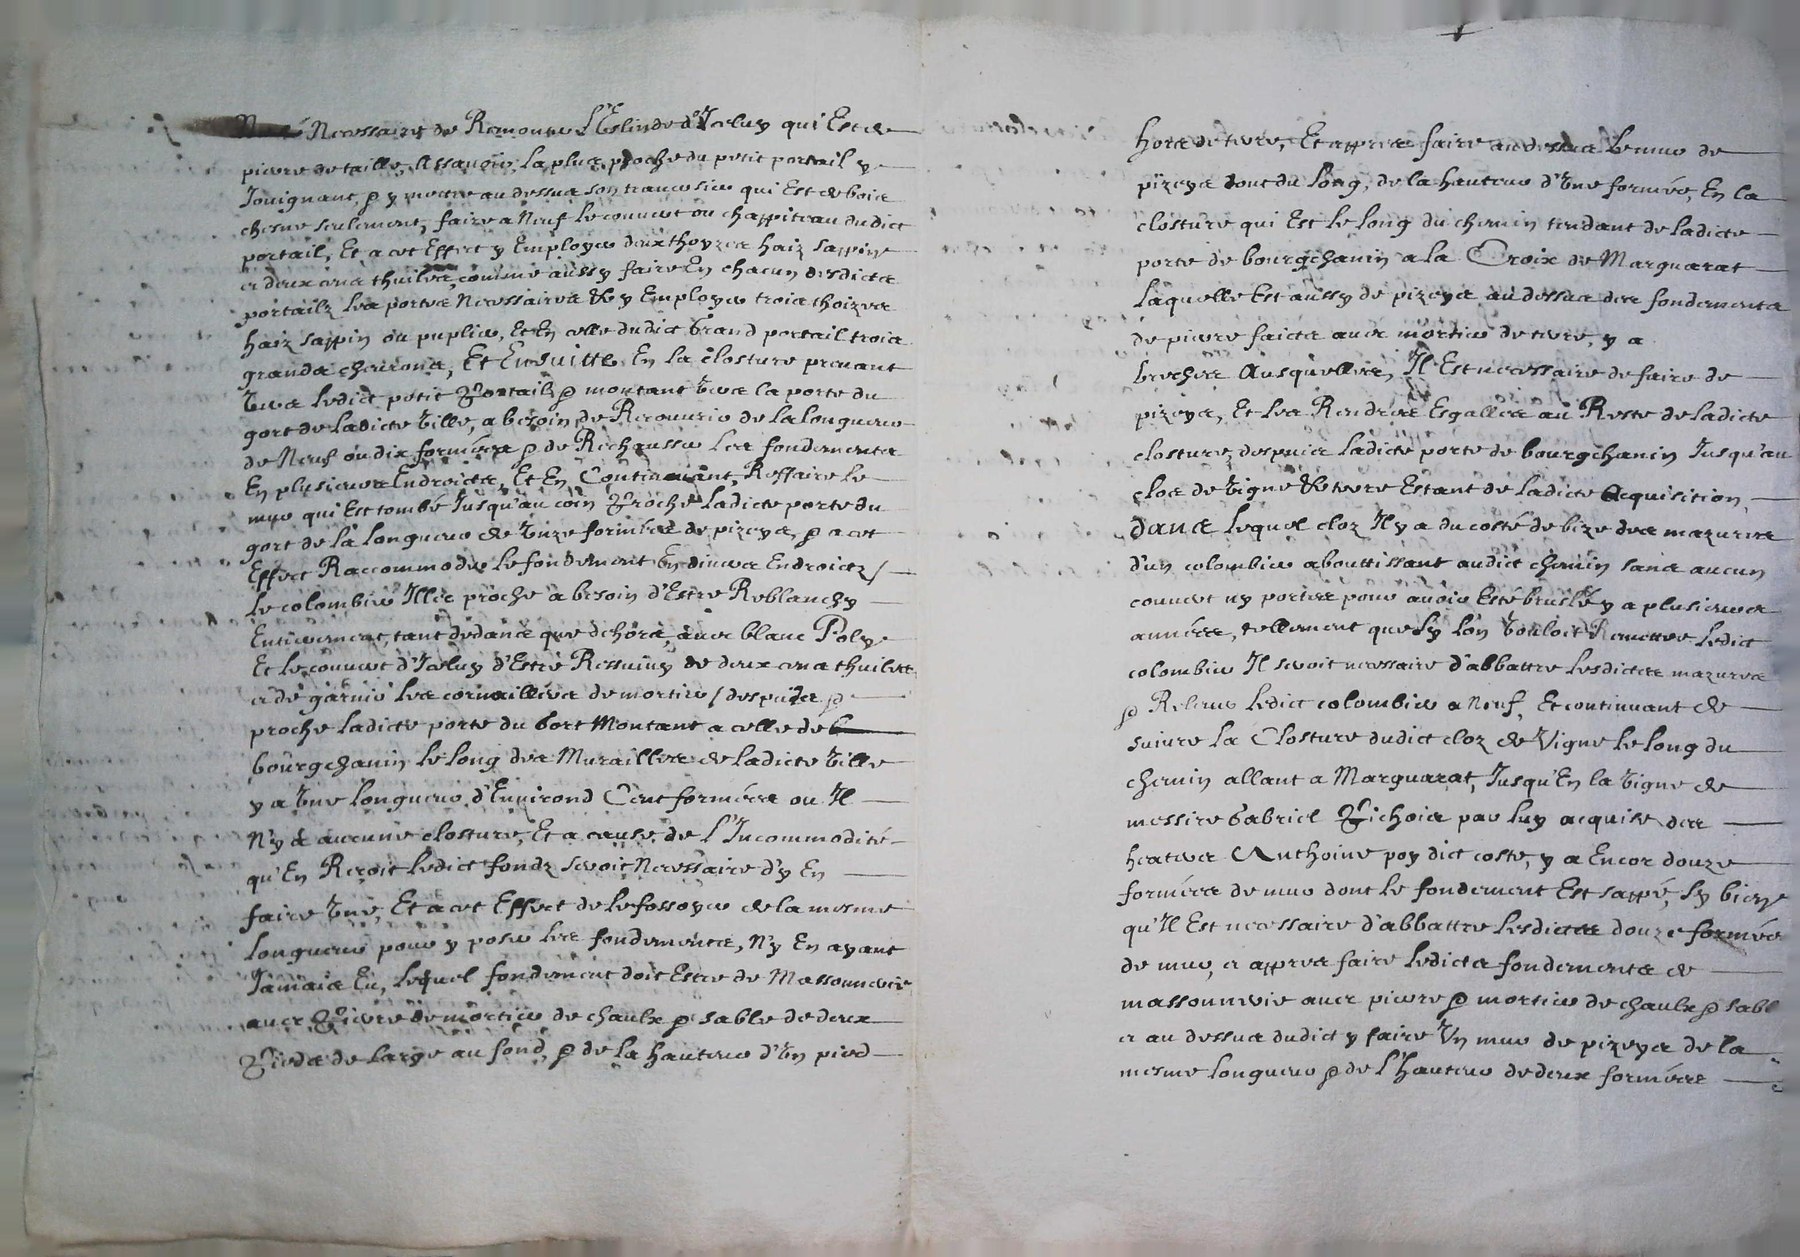 Necessaire de Remonter l'Eslinde d'Iceluy qui Est de
pierre de taille, Assauoir, la plus proche du petit portail y
Jouignant, & y mettre au dessus son trauersier qui Est de bois
chesne seulement, faire a Neuf le couuert ou chappiteau dudict
portail, Et a cet Effect y Employer deux thoyzes haiz sappin
et deux cens thuilles, comme aussy faire En chacun desdicts
portailz les portes Necessaires & y Employer trois thoizes
haiz sappin ou puplier, Et En celle dudict Grand portail trois
grands cheurons, Et Ensuitte En la closture prenant
Vers ledict petit Portail & montant Vers la porte du
gort de ladicte Ville, a besoin de Recouurir de la longueur
de Neuf ou dix formées & de Rechausser les fondements
En plusieurs Endroicts, Et En Continuant, Reffaire le
mur qui Est tombé Jusqu'au coin Proche ladicte porte du
gort de la longueur de Unze formées de pizeys, & a cet
Effect Raccommoder le fondement En diuers Endroictz /
Le colombier Illec proche a besoin d'Estre Reblanchy
Entierement, tant dedans que dehors, auec blanc Poly
Et le couuert d'Iceluy d'Estre Ressuiuy de deux cens thuilles
et de garnir les cornaillers de mortier / despuis &
proche ladicte porte du Gort Montant a celle de
bourgchanin le long des Murailles de ladicte Ville
y a Une longueur d'Enuirond Cent formées ou Il
N'y a aucune closture, Et a cause de l'Incommodité
qu'En Reçoit ledict fondz seroit Necessaire d'y En
faire Une, Et a cet Effect de le fossoyer de la mesme
longueur pour y poser les fondements, N'y En ayant
Jamais Eu, lequel fondement doit Estre de Massonnerie
auec Pierre de mortier de chaulx & sable de deux
Pieds de large au fond, & de la hauteur d'Un pied
hors de terre, Et appres faire au dessus le mur de
pizeys tout du long, de la hauteur d'Une formée, En la
closture qui Est le long du chemin tendant de ladicte
porte de bourgchanin a la Croix de Marguarat
laquelle Est aussy de pizeys au dessus des fondements
de pierre faicts auec mortier de terre, y a
breches Ausquelles, Il Est necessaire de faire de
pizeys, Et les Rendres Esgalles au Reste de ladicte
closture, despuis ladicte porte de bourgchanin Jusqu'au
clos de Vigne & terre Estant de ladicte Acquisition,
dans lequel cloz Il y a du costé de bize des mazures
d'un colombier abouttissant audict chemin sans aucun
couuert ny portes pour auoir Esté bruslé y a plusieurs
années, tellement que sy lon Vouloit Remettre ledict
colombier Il seroit necessaire d'abbattre lesdictes mazures
& Releuer ledict colombier a Neuf, Et continuant de
suiure la Closture dudict cloz de Vigne le long du
chemin allant a Marguarat, Jusqu'En la Vigne de
messire Gabriel Pichois par luy acquise des
heoirs Anthoine poy dict coste, y a Encor douze
formées de mur dont le fondement Est sappé, sy bien
qu'Il Est necessaire d'abbattre lesdictes douze formées
de mur, et appres faire ledicts fondements de
massonnerie auec pierre & mortier de chaulx & sabl
et au dessus dudict y faire Un mur de pizeys de la
mesme longueur & de l'hauteur de deux formées